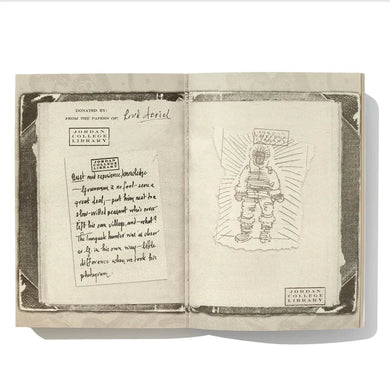 DONATED BY:
FROM THE PAPERS OF: Lord Asriel
JORDAN
COLLEGE
LIBRARY
JORDAN
COLLEGE
LIBRARY
Dust and experience/knowledge
– Grumman is no fool – seen a
great deal, – put him next to a
slow-witted peasant who's never
left his own village, and – what?
The Tungusk hunter was as clever
as G. in his own way – little
difference when we took his
photogram.
JORDAN
COLLEGE
LIBRARY